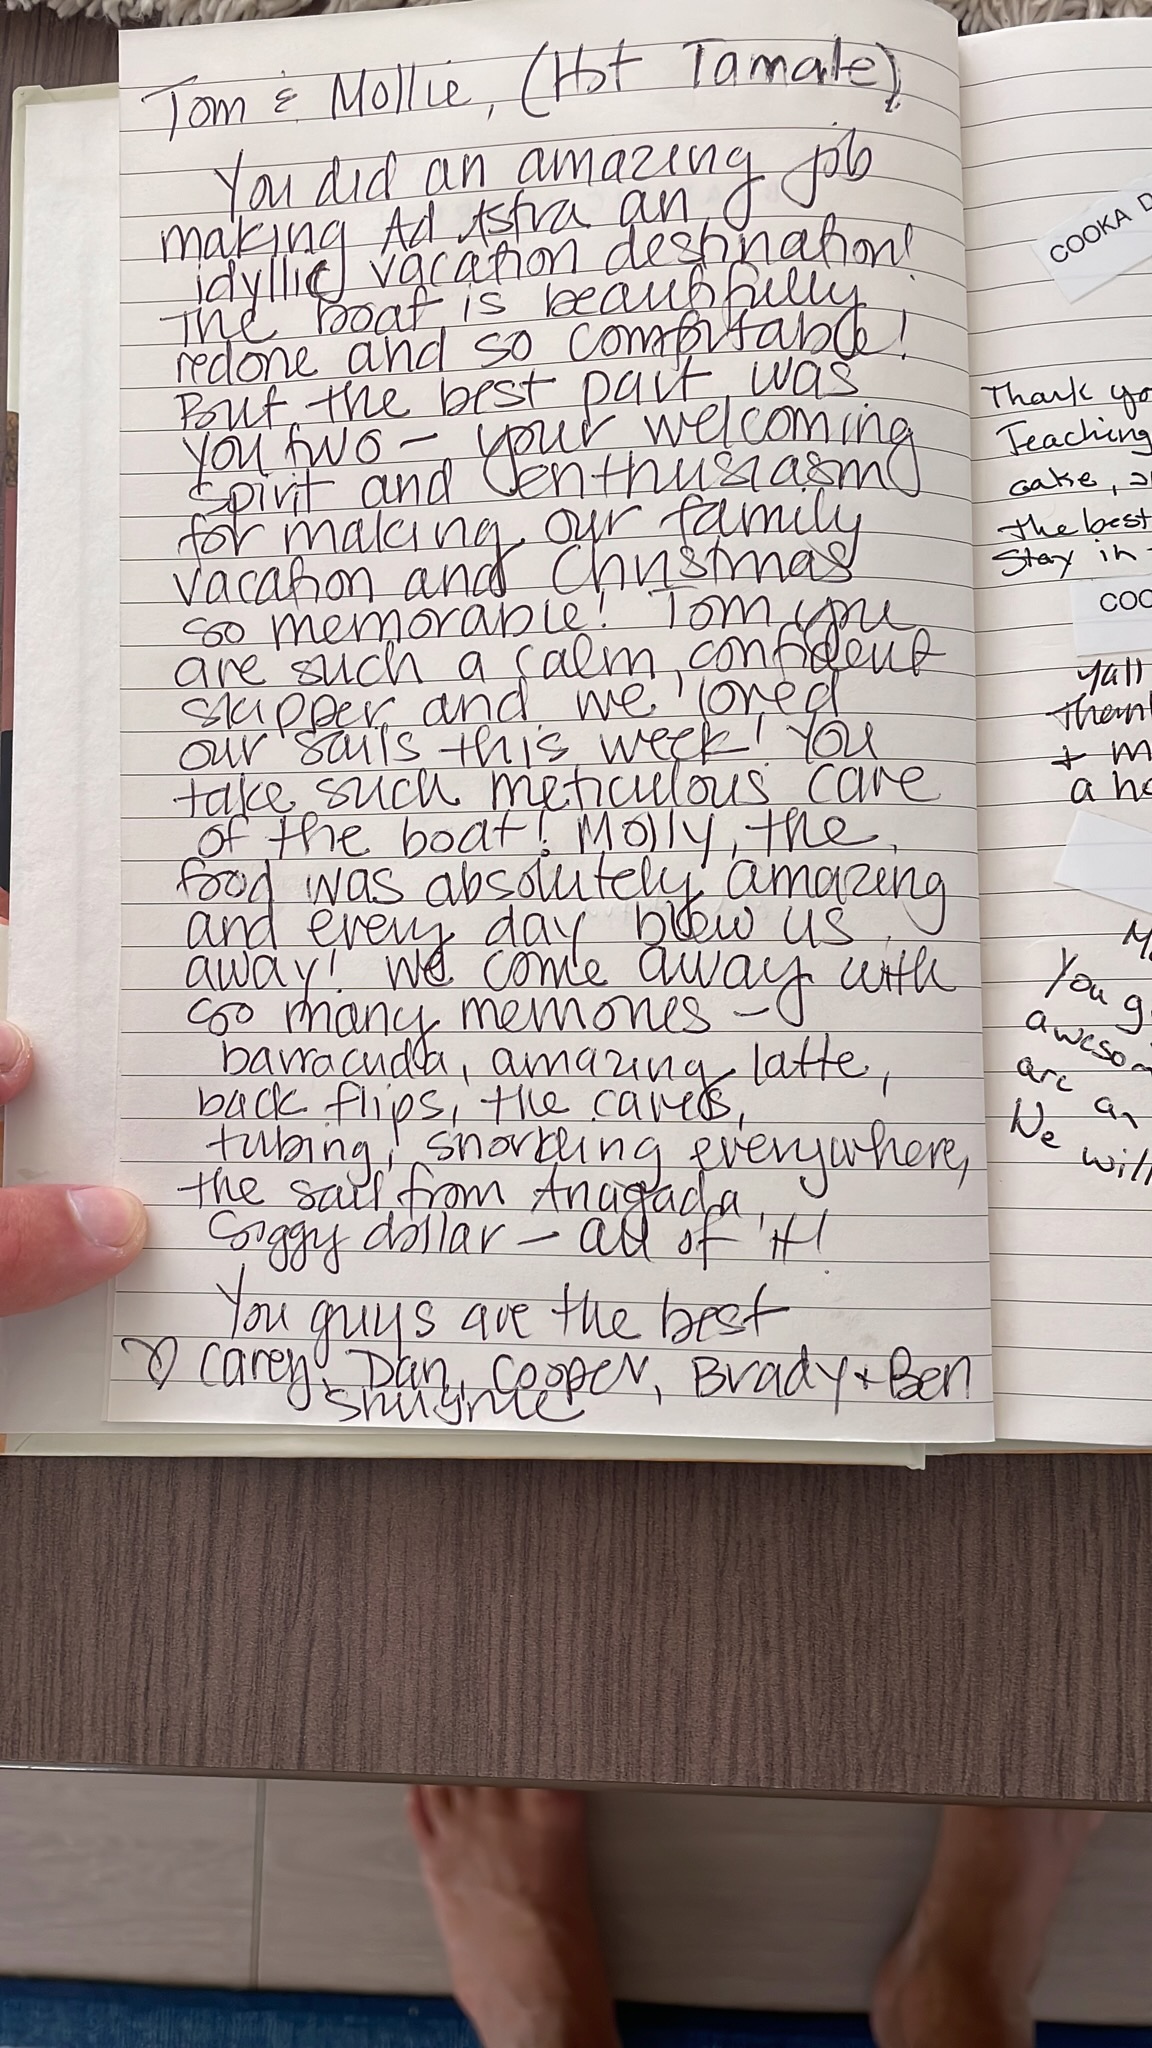 Tom & Mollie, (Hot Tamale)
You did an amazing job
making Ad Astra an
idyllic vacation destination!
The boat is beautifully
redone and so comfortable!
But the best part was
you two - your welcoming
spirit and enthusiasm
for making our family
vacation and Christmas
so memorable! Tom you
are such a calm, confident
skipper and we loved
our sails this week! You
take such meticulous care
of the boat! Molly, the
food was absolutely amazing
and every day blew us
away! We come away with
so many memories -
barracuda, amazing latte,
back flips, the caves,
tubing, snorkeling everywhere,
the sail from Anagada,
Soggy dollar - all of it!
You guys are the best
♡ Carey, Dan, Cooper, Brady + Ben
COOKA D
Thank yo
Teaching
cake, a
the best
Stay in
COO
Yall
Thank
+ m
a ho
M
You g
awesom
are an
We will